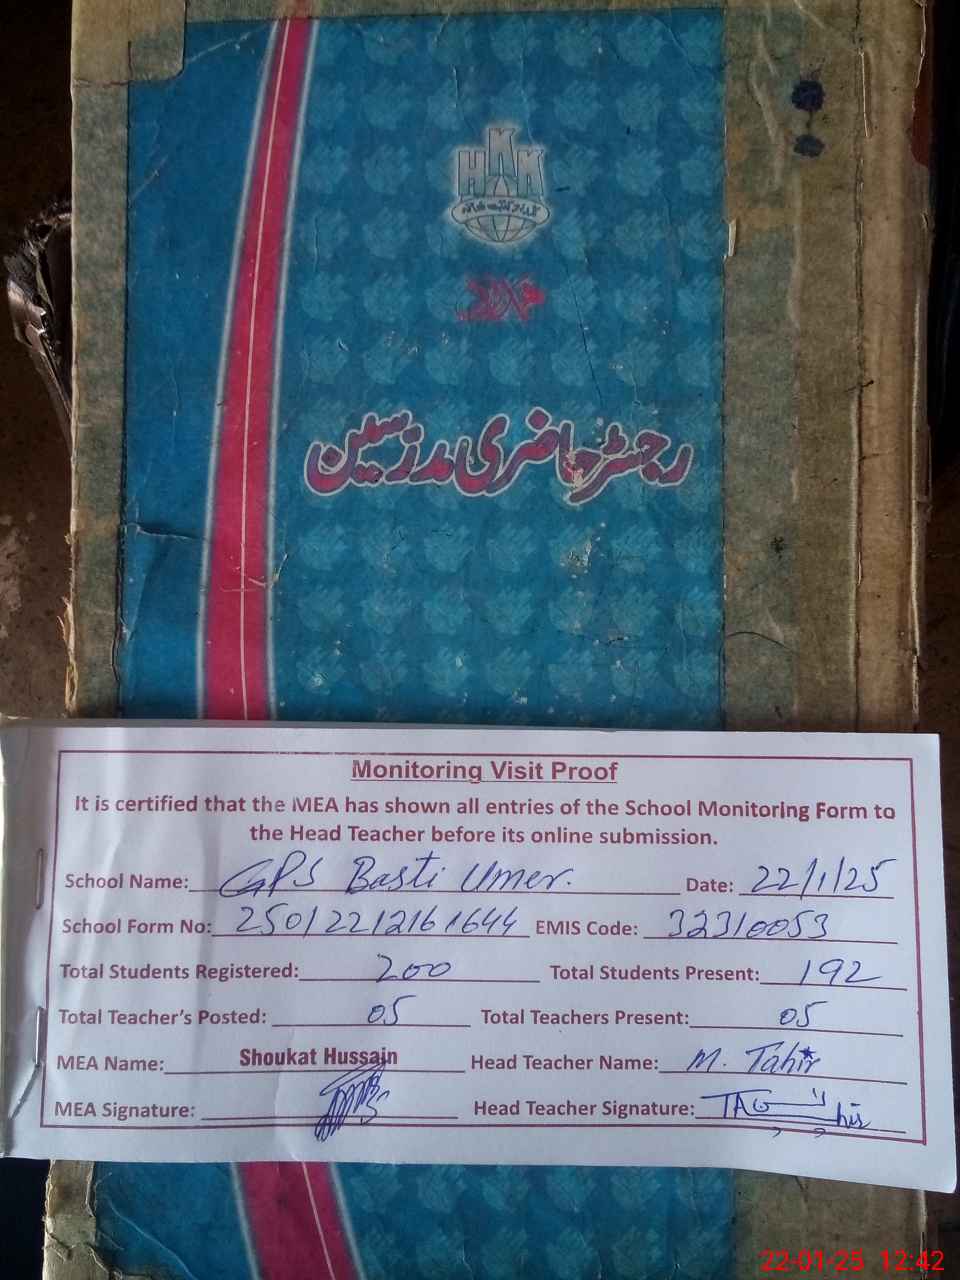 HKKK
رجسٹر حاضری مدرسین
Monitoring Visit Proof
It is certified that the MEA has shown all entries of the School Monitoring Form to
the Head Teacher before its online submission.
School Name: GPS Basti Umer. Date: 22/1/25
School Form No: 250122/2161644 EMIS Code: 32310053
Total Students Registered: 200 Total Students Present: 192
Total Teacher's Posted: 05 Total Teachers Present: 05
MEA Name: Shoukat Hussain Head Teacher Name: M. Tahir
MEA Signature: Head Teacher Signature:
22-01-25 12:42